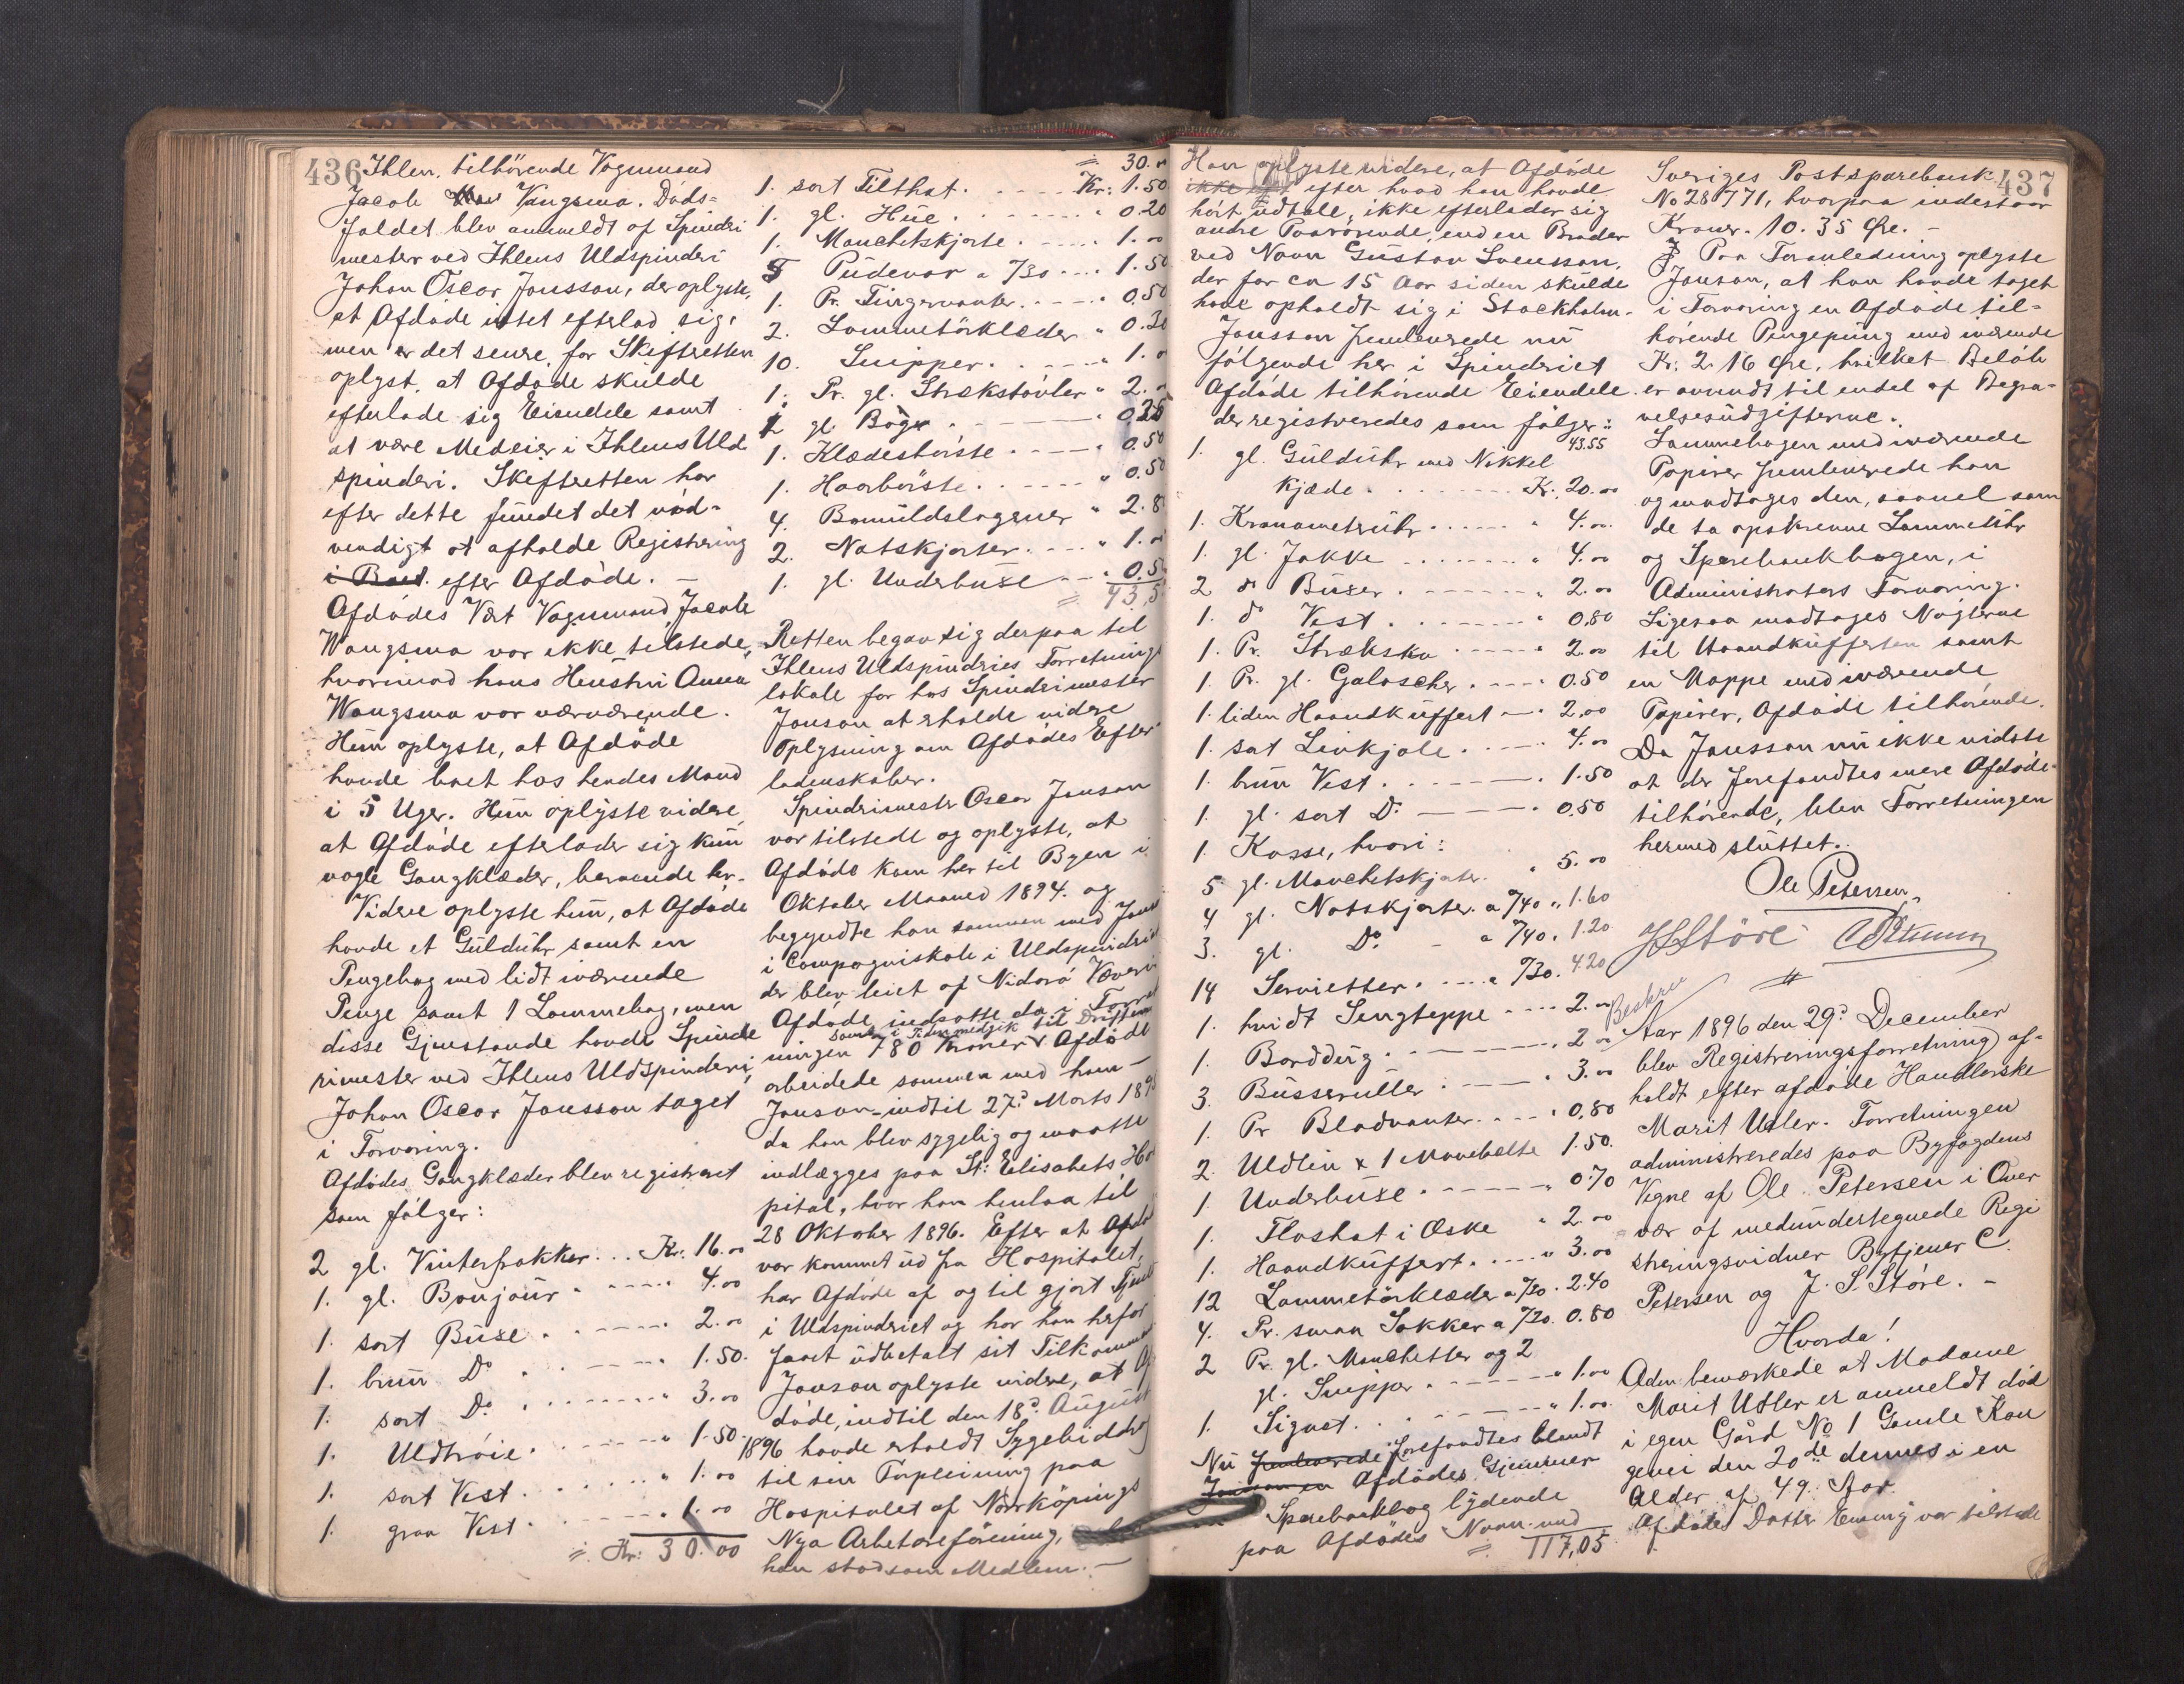 436
Ihlen, tilhörende Vognmand
Jacob Vangsmo. Döds=
faldet blev anmeldt af Spindri
mester ved Ihlens Uldspinderi
Johan Oscar Jonsson, der oplyste,
at Afdöde intet efterlod sig,
men er det senere for Skifteretten
oplyst, at Afdöde skulde
efterlade sig Eiendele samt
at være Medeier i Ihlens Uld
spinderi. Skifteretten har
efter dette fundet det nöd=
vendigt at afholde Registrering
i Boet. efter Afdöde. —
Afdödes Vært Vognmand Jacob
Wangsmo var ikke tilstede,
hvorimod hans Hustru Anna
Wangsmo var nærværende.
Hun oplyste, at Afdöde
havde boet hos hendes Mand
i 5 Uger. Hun oplyste videre,
at Afdöde efterlader sig kun
nogle Gangklæder, beroende her.
Videre oplyste hun, at Afdöde
havde et Guldühr samt en
Pengebog med lidt iværende
Penge samt 1 Lommebog, men
disse Gjenstande havde Spinde
rimester ved Ihlens Uldspinderi,
Johan Oscar Jonsson taget
i Forvaring.
Afdödes Gangklæder blev registreret
som fölger:
2 gl. Vinterfrakker... Kr: 16.00
1. gl. Bonjour. " 4.00
1. sort Buxe. " 2.00
1. brun Do. " 1.50.
1. sort Do. " 3.00
1. Uldtröie. " 1.50.
1. sort Vest. " 1.00
1. graa Vest. " 1.00
= Kr: 30.00
= 30.00
1. sort Filthat. Kr: 1.50
1. gl. Hue. " 0.20
1. Manchetskjorte. " 1.00
5 Pudevar a /30 1.50
1. Pr. Fingervanter. " 0.50
2. Lommetörklæder " 0.30
10. Snipper. " 1.0
1. Pr. gl. Strækstövler " 2.0
2 gl. Böger " 0.25
1. Klædesbörste. " 0.50
1. Haarbörste. " 0.50
4. Bomuldslagener " 2.8
2. Natskjorter. " 1.0
1. gl. Underbuxe " 0.5
= 43,5
Retten begav sig derpaa til
Ihlens Uldspindries Forretnings
lokale for hos Spindrimester
Jonson at erholde videre
Oplysning om Afdödes Efter
ladenskaber.
Spindrimester Oscar Jonson
var tilstede og oplyste, at
Afdöde kom her til Byen i
Oktober Maaned 1894. og
begyndte han sammen med Jons
i Compagniskab i Uldspindriet
der blev leiet af Nidarö Væveri
Afdöde indsatte da i Forret
ningen 780 Kroner som i Tiden medgik til Driften Afdöde
arbeidede sammen med ham —
Jonson indtil 27de Marts 1896
da han blev sygelig og maatte
indlægges paa St: Elisabets Hos
pital, hvor han henlaa til
28 Oktober 1896. Efter at Afdö
var kommet ud fra Hospitalet,
har Afdöde af og til gjort
i Uldspindriet og har han herfor
faaet udbetalt sit Tilkommende
Jonson oplyste videre, at Af
döde, indtil den 18de August
1896 havde erholdt Sygebidrag
til sin Forpleining paa
Hospitalet af Norrköpings
Nya Arbetareförening,
han stod som Medlem. —
Han oplyste videre, at Afdöde
ikke efter hvad han havde
hört udtale, ikke efterlader sig
andre Paarörende, end en Broder
ved Navn Gustav Svensson,
der for ca 15 Aar siden skulde
have opholdt sig i Stockholm.
Jonsson fremleverede nu
fölgende her i Spindriet
Afdöde tilhörende Eiendele.
der registreredes som fölger:
43.55
1. gl. Guldühr med Nökkel
Kjæde. Kr. 20.00
1. Kronometeruhr " 4.00
1. gl. Jakke " 4.00
2 do Buxer. " 2.00
1. do Vest. " 0.80
1. Pr. Stræksko " 2.00
1. Pr. gl. Galoscher. " 0.50
1. liden Haandküffert " 2.00
1. sat Livkjole. " 4.00
1. brun Vest. " 1.50
1. gl. sort Do " 0.50
1. Kasse, hvori:
5 gl. Manchetskjorter " 5.00
4 gl. Natskjorter. a /40 " 1.60
3. gl. Do a /40. 1.20
14 Servietter. a /30. 4.20
1. hvidt Sengteppe 2.00
1. Borddug. 2.00
3. Busseruller " 3.00
1. Pr Bladvanter. " 0.80
2. Uldlin & 1 Mavebælte 1.50.
1. Underbuxe. " 0.70
1. Floshat i Æske " 2.00
1. Haandküffert. " 3.00
12 Lommetörklæder a /20. 2.40
4. Pr. smaa Sokker a /20. 0.80
2 Pr. gl. Manchetter og 2
gl. Snipper. " 1.00
1. Signet. " 1.00
Nu fremleverede forefandtes blandt
Jonsson en Afdödes Gjemmer
Sparebankbog lydende
paa Afdödes Navn med
= 117,05
437
Sveriges Postsparebank
No 28771, hvorpaa indestaar
Kroner. 10. 35 Øre. —
Paa Foranledning oplyste
Jonson, at han havde taget
i Forvaring en Afdöde til-
hörende Pengepung med iværende
Kr: 2. 16 Øre, hvilket Belöb
er anvendt til endel af Begra-
velsesudgifterne.
Lommebogen med iværende
Papirer fremleverede han
og modtages den, saavel som
de to opskrevne Lommeuhr
og Sparebankbogen, i
Administrators Forvaring.
Ligesaa modtages Nöglerne
til Haandküfferten samt
en Mappe med iværende
Papirer, Afdöde tilhörende.
Da Jonsson nu ikke vidste
at der forefandtes mere Afdöde
tilhörende, blev Forretningen
hermed sluttet.
Ole Petersen
J S Störe C Petersen
Beskrev
Aar 1896 den 29de December
blev Registreringsforretning af-
holdt efter afdöde Handlerske
Marit Utler. Forretningen
administreredes paa Byfogdens
Vegne af Ole Petersen i Over
vær af medundertegnede Regi
streringsvidner Bytjener C.
Petersen og J. S. Störe. —
Hvorda!
Adm. bemærkede at Madame
Marit Utler er anmeldt död
i egen Gård No 1 Gamle Kon
gevei den 20de dennes i en
Alder af 49 Aar.
Afdödes Datter var tilstede